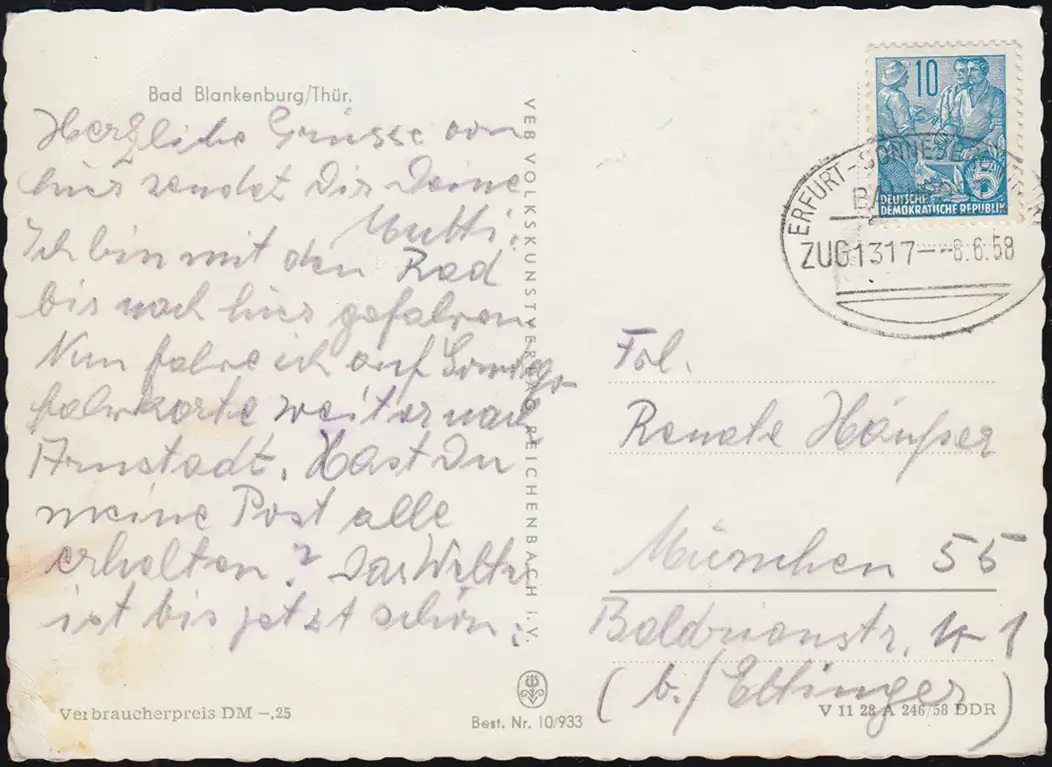 Bad Blankenburg/Thür.
Herzliche Grüsse von
hier sendet Dir Deine
Mutti.
Ich bin mit den Rad
bis nach hier gefahren
Nun fahre ich auf Sonntags-
fahrkarte weiter nach
Arnstadt. Hast Du
meine Post alle
erhalten? Das Wetter
ist bis jetzt schön.
Verbraucherpreis DM –,25
VEB VOLKSKUNSTVERLAG REICHENBACH i. V.
Best. Nr. 10/933
10
5
DEUTSCHE
DEMOKRATISCHE REPUBLIK
ERFURT-SONNE
ZUG1317--8.6.58
Frl.
Renate
München 55
Baldrianstr. 1
(b./ Ettinger)
V 11 28 A 246/58 DDR